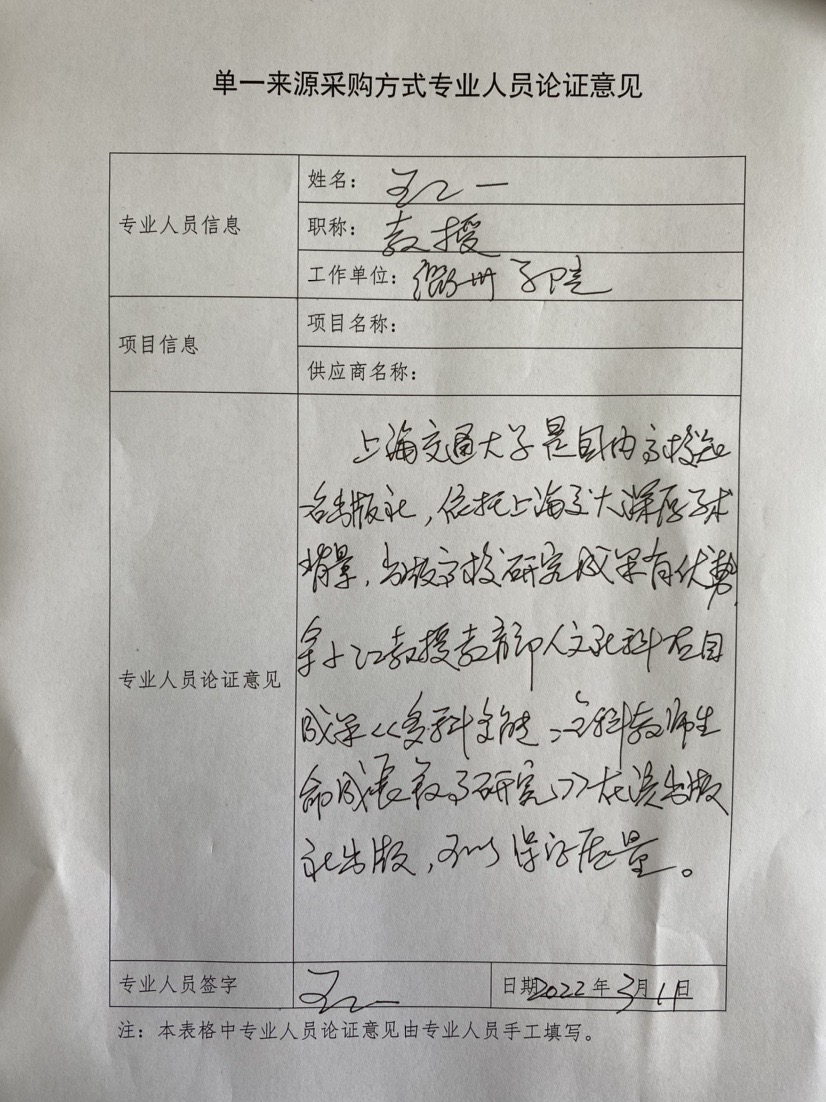 单一来源采购方式专业人员论证意见
专业人员信息
姓名： 一
职称： 教授
工作单位： 学院
项目信息
项目名称：
供应商名称：
专业人员论证意见
上海交通大学是国内高校知
名出版社，依托上海交大深厚学术
背景，出版高校研究成果有优势，
江教授教育部人文社科项目
成果《多科全能：全科教师生
命成长叙事研究》在该出版
社出版，可以保证质量。
专业人员签字
日期2022年3月1日
注：本表格中专业人员论证意见由专业人员手工填写。